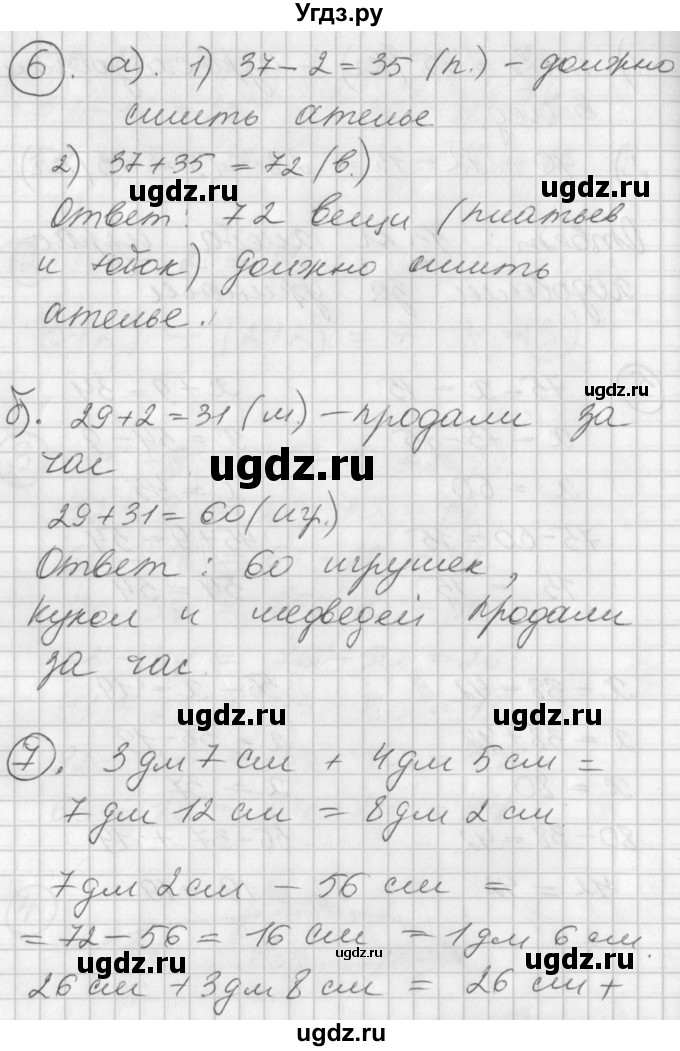 Угдз.ру
6. а). 1) 37-2=35 (п.) - должно
сшить ателье
2) 37+35=72 (в.)
ugdz.ru ugdz.ru
Ответ: 72 вещи (платьев
и юбок) должно сшить
ателье.
ugdz.ru
б). 29+2=31 (м) - продали за
час
ugdz.ru
29+31=60 (игр.)
Ответ: 60 игрушек,
кукол и медведей продали
за час.
ugdz.ru ugdz.ru
7. 3 дм 7 см + 4 дм 5 см =
7 дм 12 см = 8 дм 2 см.
7 дм 2 см - 56 см =
= 72-56 = 16 см = 1 дм 6 см.
ugdz.ru ugdz.ru ugdz.ru
26 см + 3 дм 8 см = 26 см +
ugdz.ru